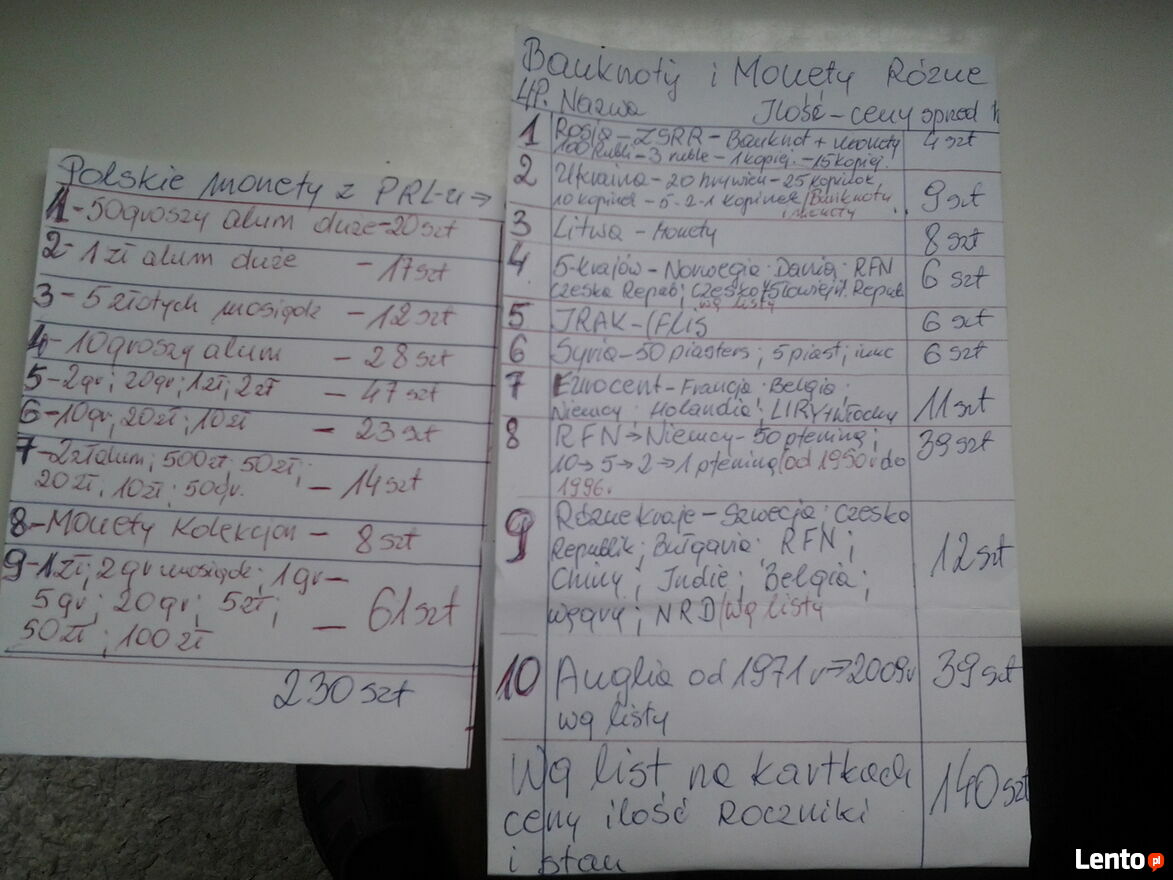 Polskie monety z PRL-u →
1-50groszy alum duże-20szt
2-1zł alum duże - 17szt
3-5złotych mosiądz - 12szt
4-10groszy alum - 28szt
5-2gr; 20gr; 1zł; 2zł - 47szt
6-10gr; 20zł; 10zł - 23szt
7-2złalum; 500zł; 50zł;
20zł, 10zł; 50gr. - 14szt
8-Monety Kolekcjon - 8szt
9-1zł; 2gr mosiądz; 1gr-
5gr; 20gr; 5zł;
50zł; 100zł - 61szt
230szt
Banknoty i Monety Różne
LP. Nazwa Ilość-ceny sprzed
1 Rosja-ZSRR-Banknot+monety 4szt
100 Rubli-3 ruble-1kopiej.-15kopiej.
2 Ukraina-20 hrywien-25kopinok, 9szt
10kopinek-5-2-1 kopinek/Banknoty
i monety
3 Litwa-Monety 8szt
4 5-krajów-Norwegia; Dania; RFN 6szt
Czeska Repub; Czesko Repub
wg listy
5 IRAK-(FLIS 6szt
6 Syria-50piasters; 5piast; inne 6szt
7 Eurocent-Francja; Belgia; 11szt
Niemcy; Holandia; LIRY→Włochy
8 RFN→Niemcy-50pfening; 39szt
10→5→2→1pfening/od 1950rdo
1996r
9 Różnekraje-Szwecja; Czesko
Republik; Bułgaria; RFN; 12szt
Chiny; Indie; Belgia;
węgry; NRD/wg listy
10 Anglia od 1971r→2009r 39szt
wg listy
Wg list na kartkach 140szt
ceny ilość Roczniki
i stan
Lento.pl